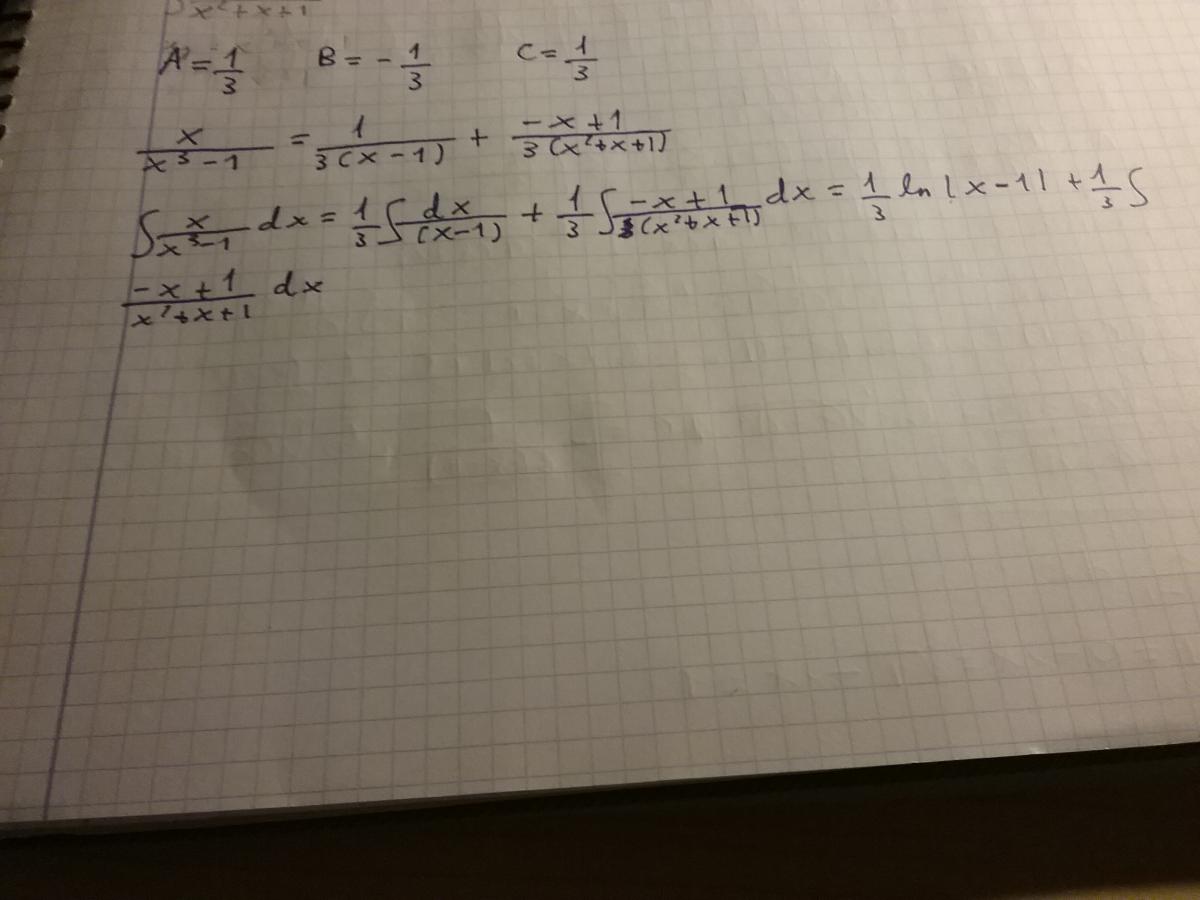 x²+x+1
A = 1/3 B = - 1/3 C = 1/3
x/(x³-1) = 1/(3(x-1)) + (-x+1)/(3(x²+x+1))
∫ x/(x³-1) dx = 1/3 ∫ dx/(x-1) + 1/3 ∫ (-x+1)/((x²+x+1)) dx = 1/3 ln|x-1| + 1/3 ∫
(-x+1)/(x²+x+1) dx